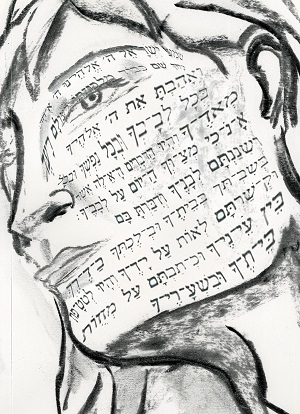 שמע ישראל ה' אלהינו ה' אחד
שם
ואהבת את ה' אלהיך
בכל לבבך ובכל נפשך ובכל
מאדך והיו הדברים האלה אשר
אנכי מצוך היום על לבבך
ושננתם לבניך ודברת בם
בשבתך בביתך ובלכתך בדרך
וקשרתם לאות על ידך והיו לטטפת
בין עיניך וכתבתם על מזזות
ביתך ובשעריך